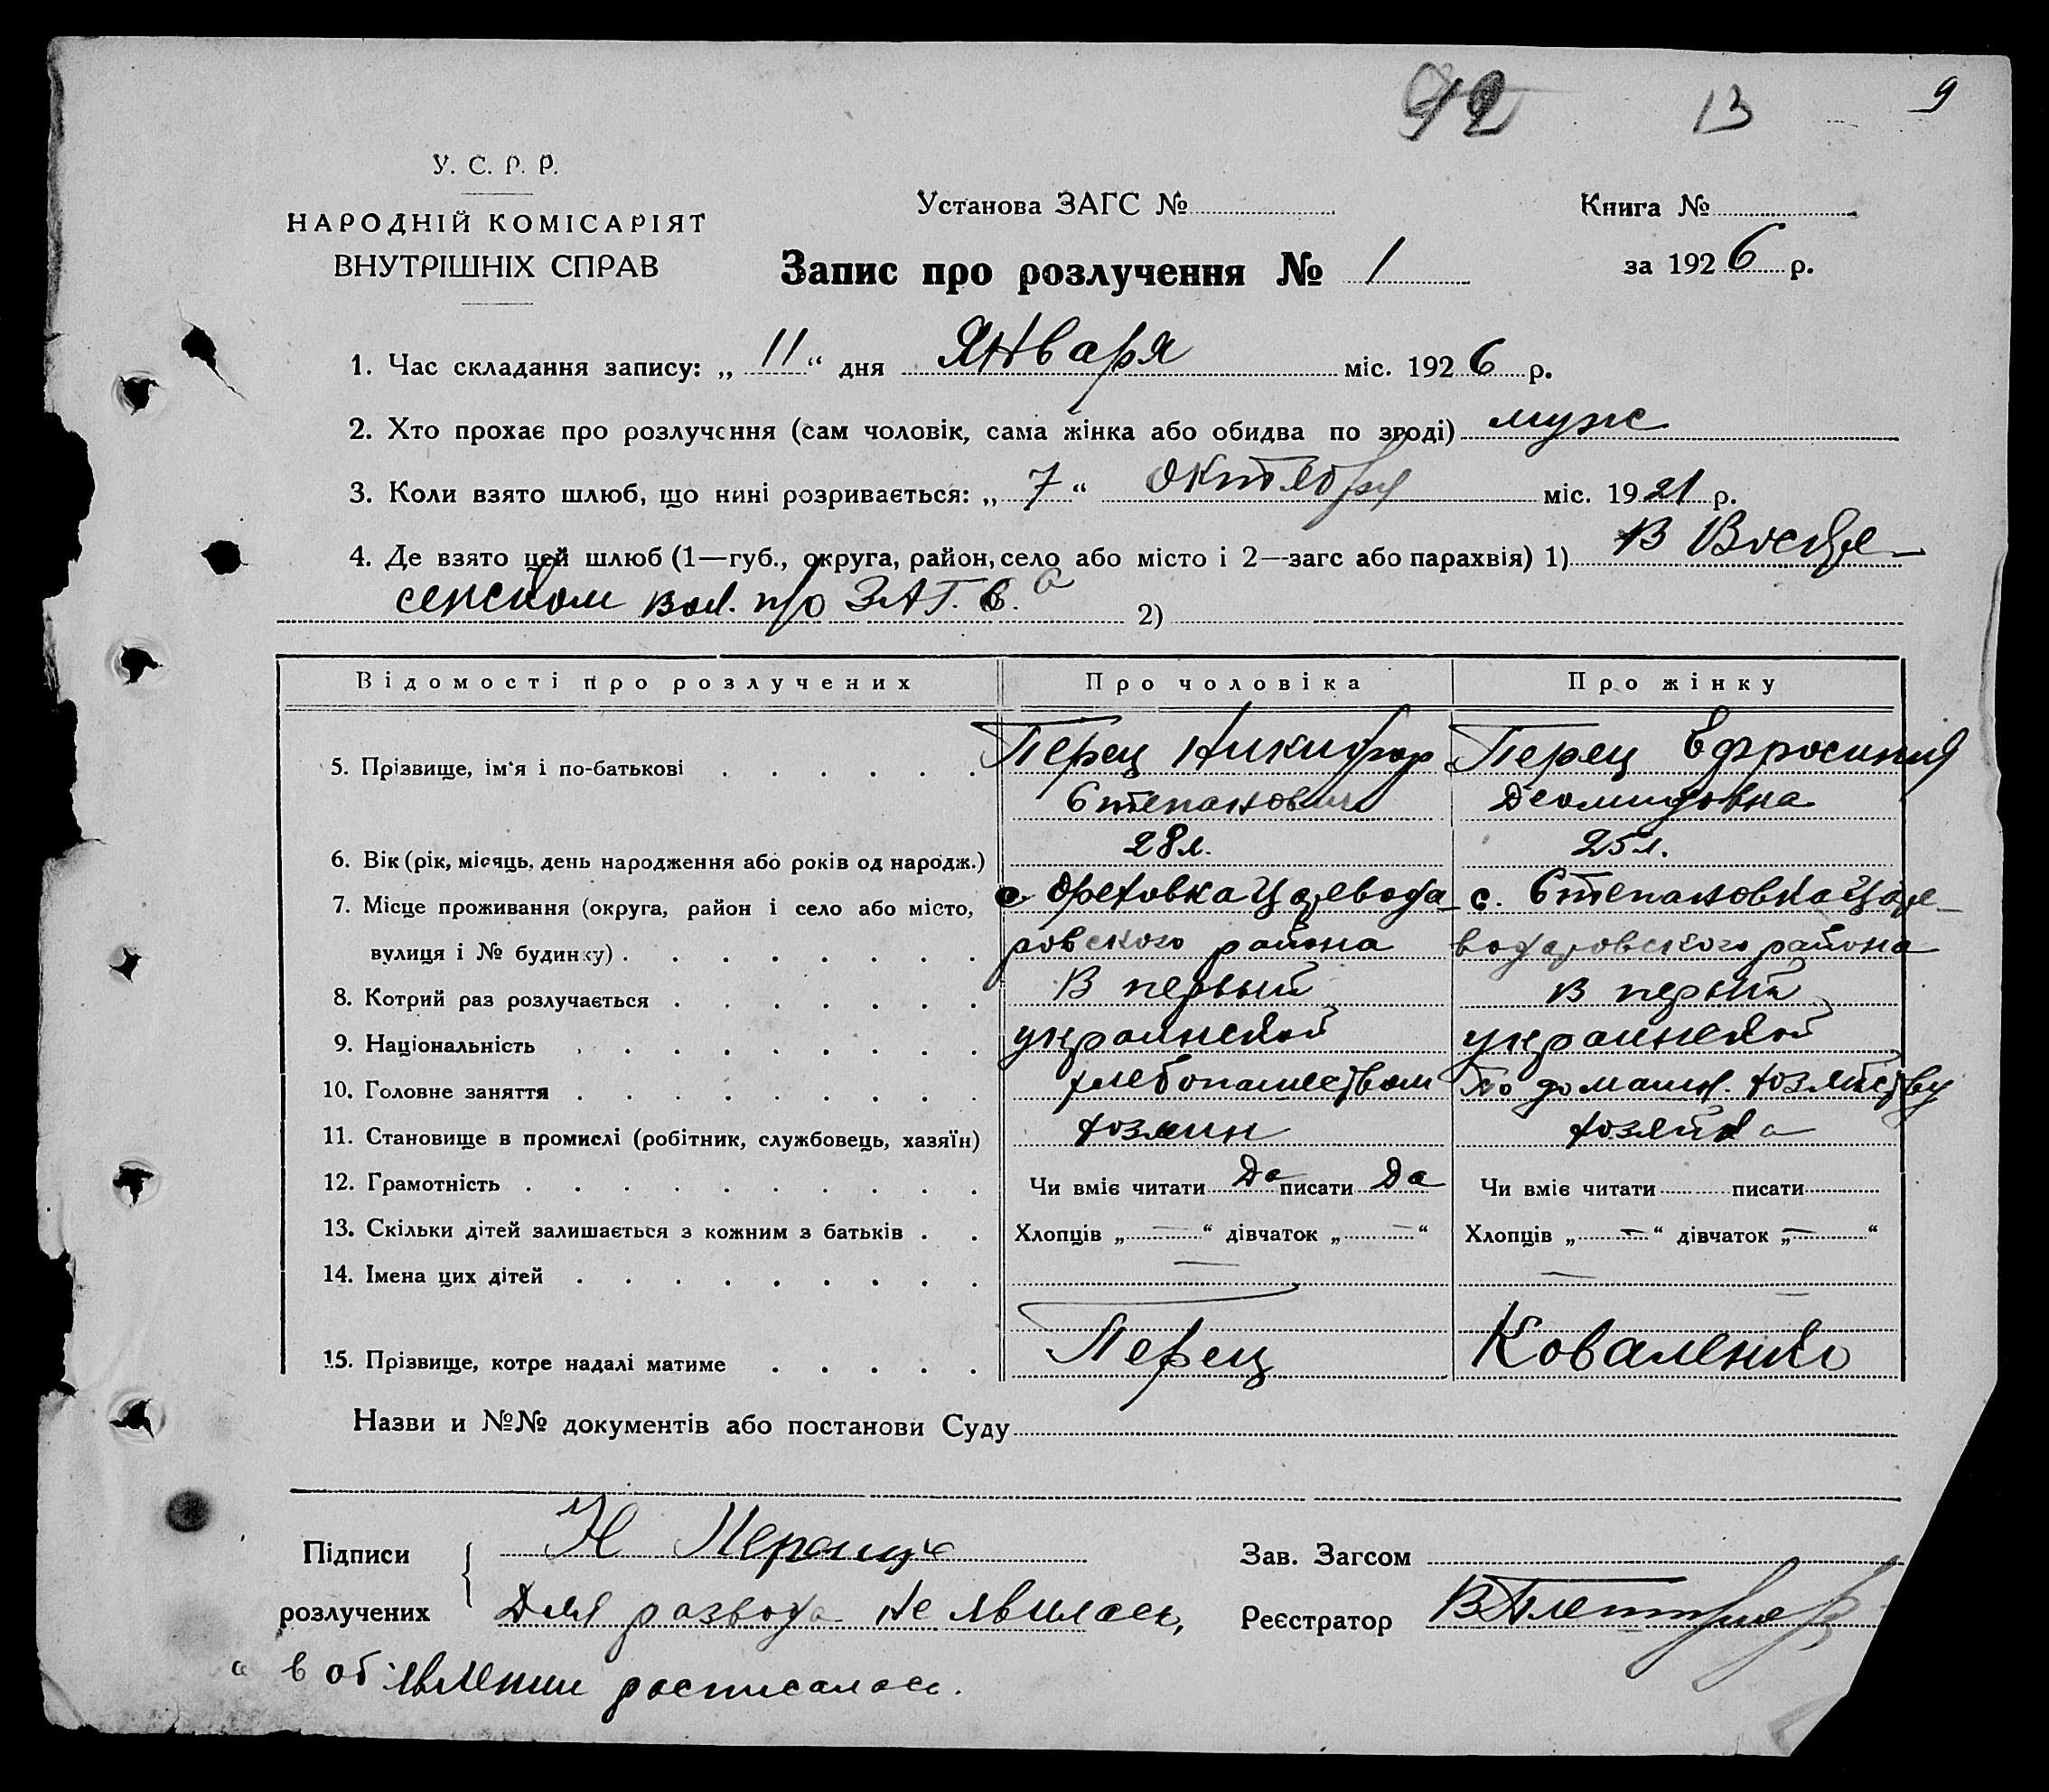 92 13 9
У. С. Р. Р.
НАРОДНІЙ КОМІСАРІЯТ
ВНУТРІШНІХ СПРАВ
Установа ЗАГС №
Книга №
Запис про розлучення № 1
за 1926 р.
1. Час складання запису: „ 11 “ дня Января міс. 1926 р.
2. Хто прохає про розлучення (сам чоловік, сама жінка або обидва по згоді) муж
3. Коли взято шлюб, що нині розривається: „ 7 “ октября міс. 1921 р.
4. Де взято цей шлюб (1—губ., округа, район, село або місто і 2—загс або парахвія) 1) В Воскре-
сенском вол. п/о ЗАГС.а 2)
Відомості про розлучених Про чоловіка Про жінку
5. Прізвище, ім'я і по-батькові Перец Никифор Перец Ефросиния
Степанович Деомидовна
6. Вік (рік, місяць, день народження або років од народж.) 28 л. 25 л.
7. Місце проживання (округа, район і село або місто, с. Ореховка Царевода- с. Степановка Царе-
вулиця і № будинку) ровского района водаровского района
8. Котрий раз розлучається В первый в первый
9. Національність украинской украинской
10. Головне заняття хлебопашеством По домашн. хозяйству
11. Становище в промислі (робітник, службовець, хазяїн) хозяин хозяйка
12. Грамотність Чи вміє читати Да писати Да Чи вміє читати писати
13. Скільки дітей залишається з кожним з батьків Хлопців „ — “ дівчаток „ — “ Хлопців „ — “ дівчаток „ — “
14. Імена цих дітей — —
15. Прізвище, котре надалі матиме Перец Коваленко
Назви и №№ документів або постанови Суду
Підписи Н Перець Зав. Загсом
розлучених Для развода не явилась, Реєстратор
а в об'явлении росписалась.